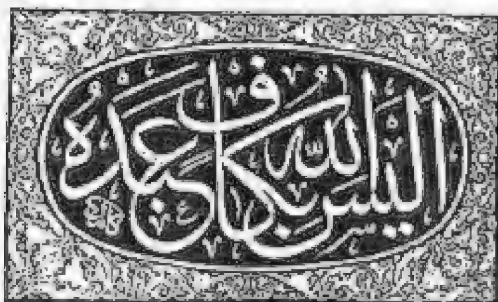 أليس الله بكاف عبده